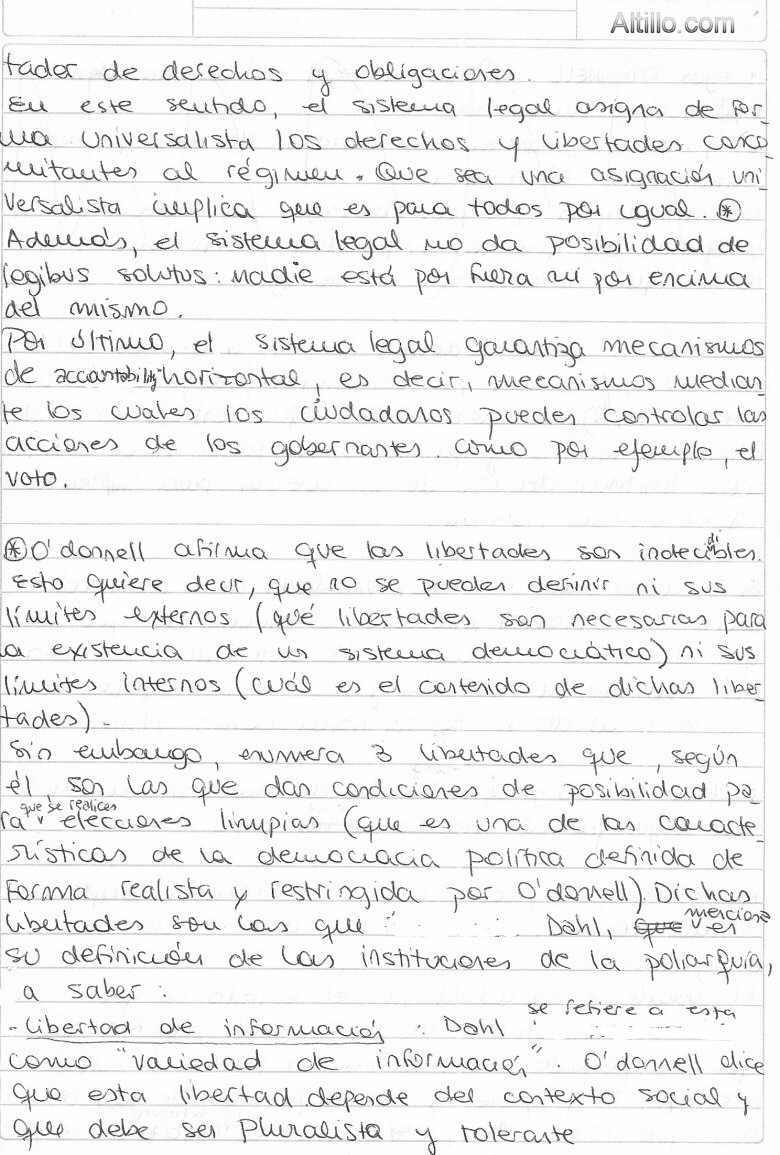 Altillo.com
tador de derechos y obligaciones.
En este sentido, el sistema legal asigna de for-
ma universalista los derechos y libertades conco-
mitantes al régimen. Que sea una asignación uni-
versalista implica que es para todos por igual. ⊛
Además, el sistema legal no da posibilidad de
legibus solutus: nadie está por fuera ni por encima
del mismo.
Por último, el sistema legal garantiza mecanismos
de accontability horizontal, es decir, mecanismos median-
te los cuales los ciudadanos pueden controlar las
acciones de los gobernantes. como por ejemplo, el
voto.
⊛ O'donnell afirma que las libertades son indecidibles.
Esto quiere decir, que no se pueden definir ni sus
límites externos (qué libertades son necesarias para
la existencia de un sistema democrático) ni sus
límites internos (cuál es el contenido de dichas liber-
tades).
Sin embargo, enumera 3 libertades que, según
él, son las que dan condiciones de posibilidad pa-
ra que se realicen elecciones limpias (que es una de las caracte-
rísticas de la democracia política definida de
forma realista y restringida por O'donnell). Dichas
libertades son las que Dahl, menciona en
su definición de las instituciones de la poliarquía,
a saber:
- Libertad de información: Dahl se refiere a esta
como "variedad de información". O'donnell dice
que esta libertad depende del contexto social y
que debe ser pluralista y tolerante